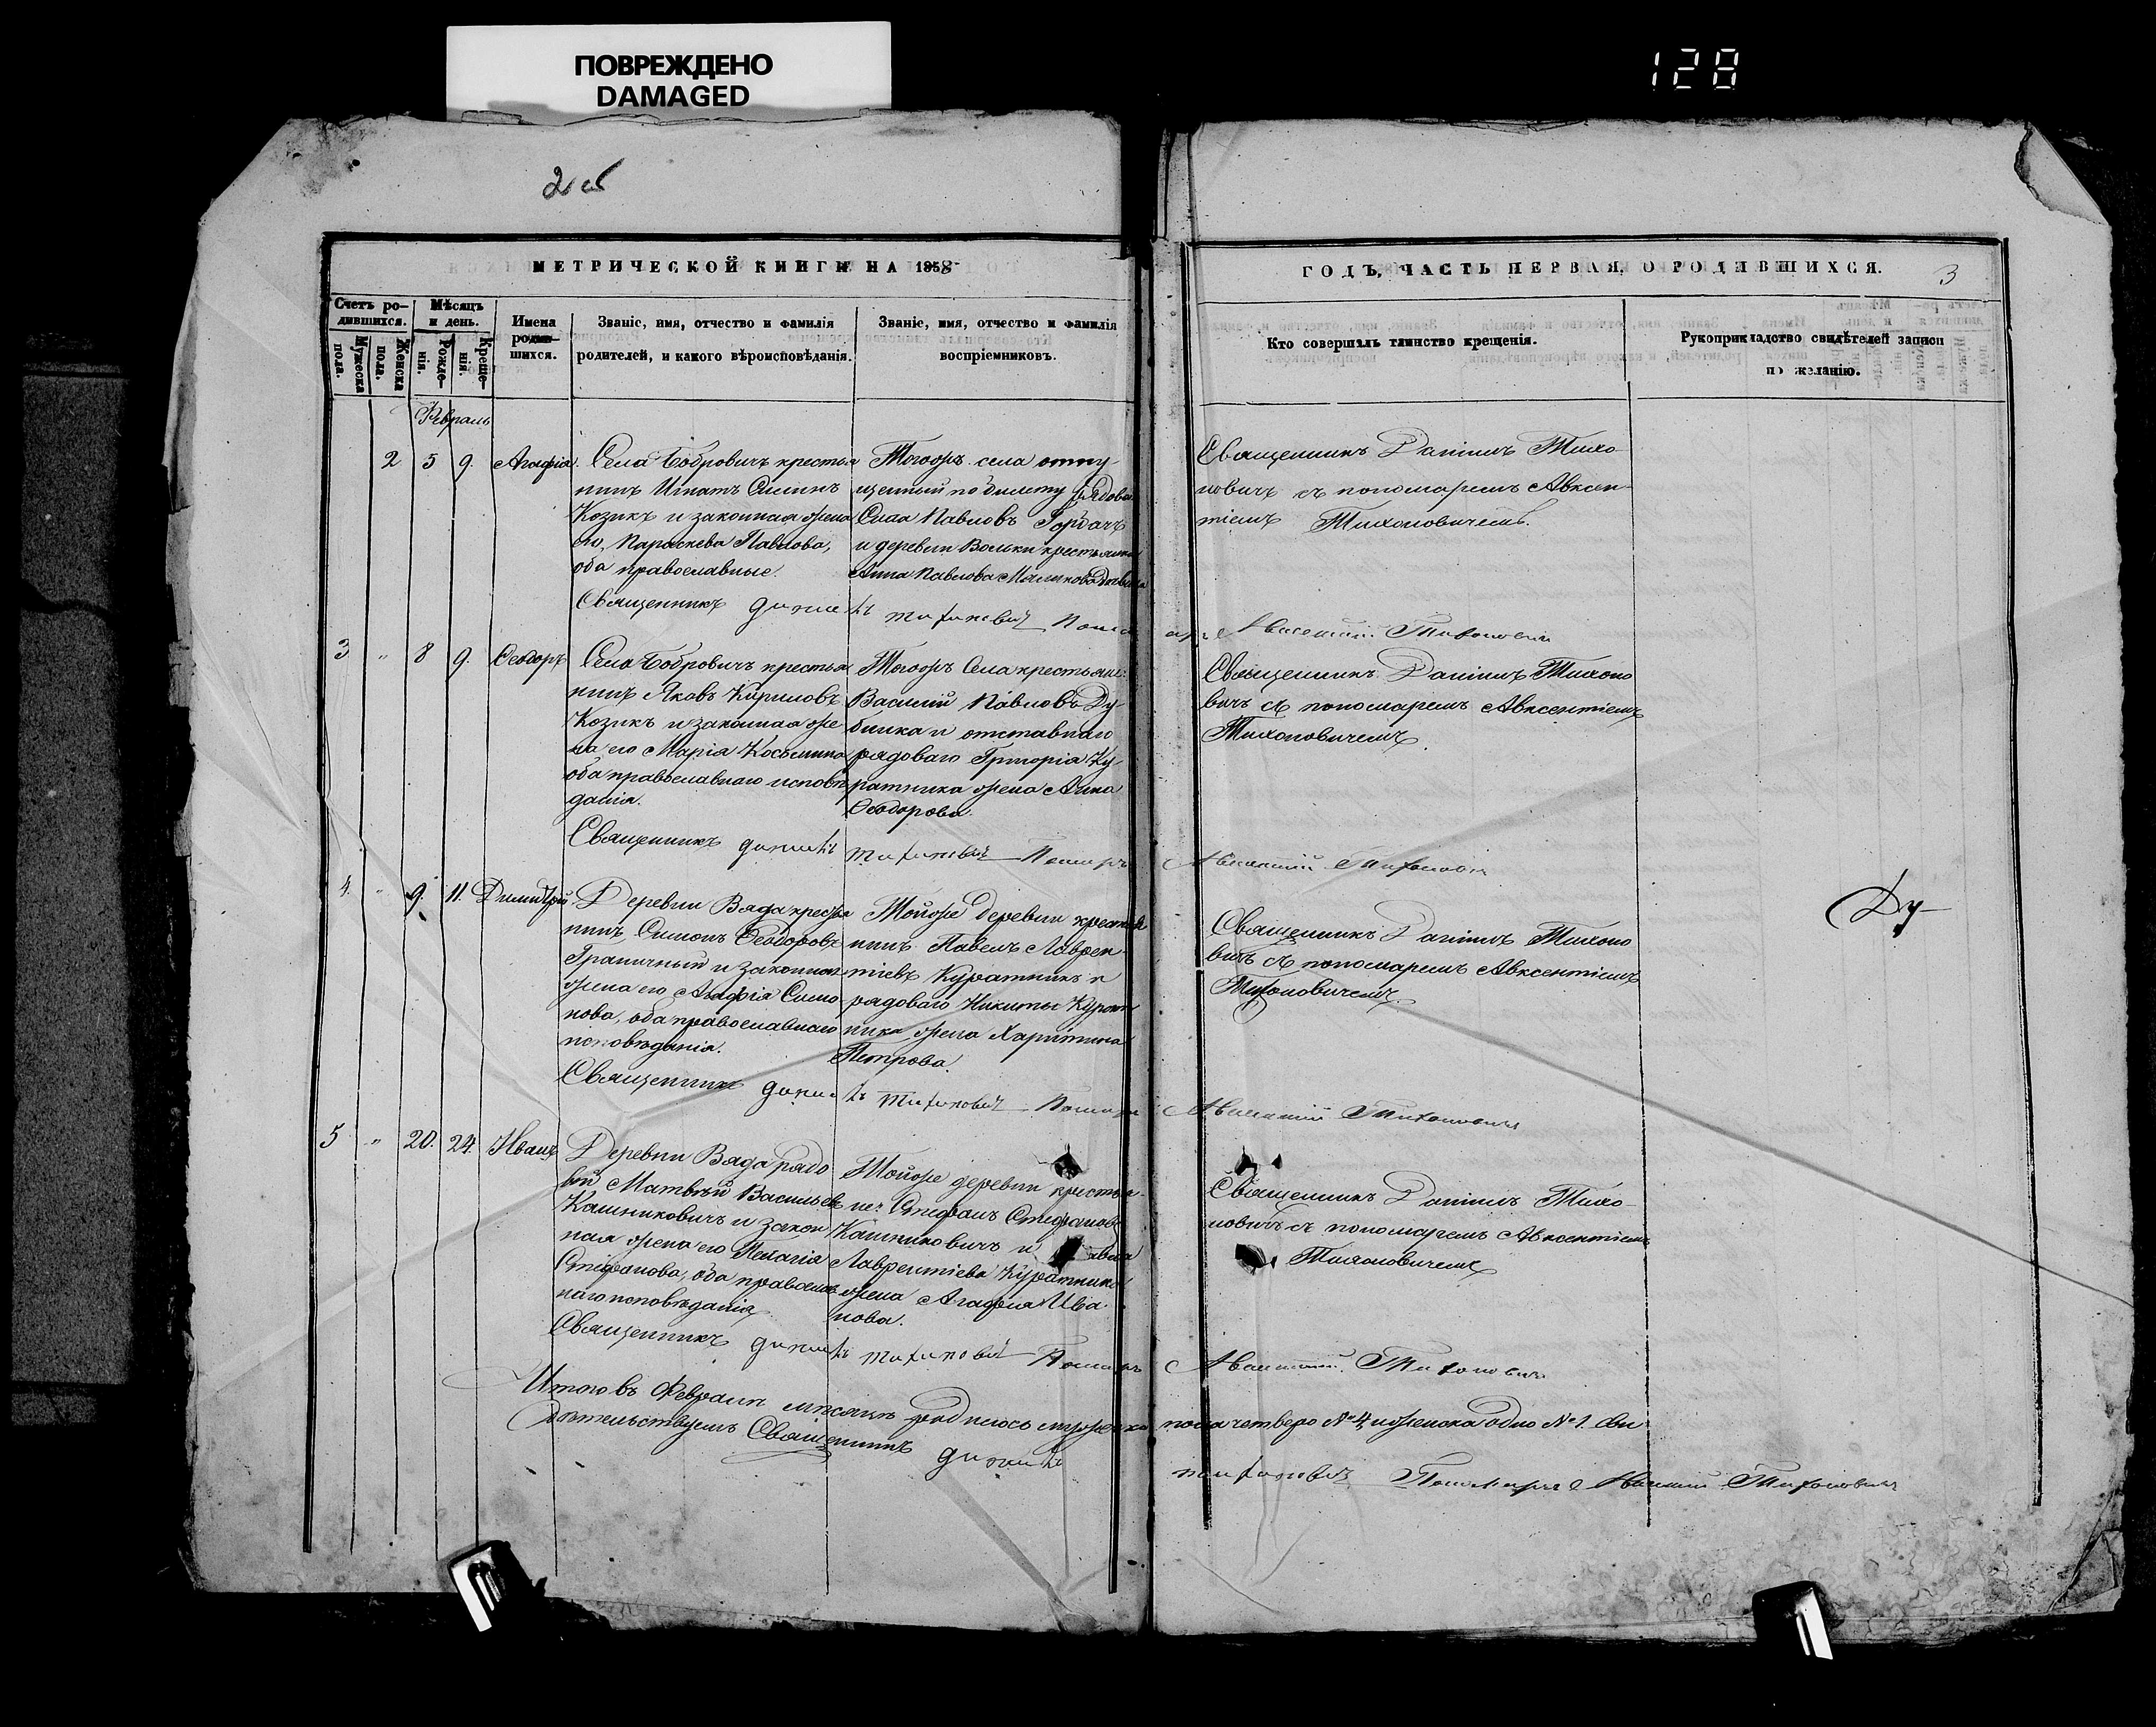 ПОВРЕЖДЕНО
DAMAGED
128
2 об
МЕТРИЧЕСКОЙ КНИГИ НА 1858
ГОДЪ, ЧАСТЬ ПЕРВАЯ, О РОДИВШИХСЯ.
3
Счетъ ро-
дившихся.
Мужеска
пола.
Женска
пола.
Мѣсяцъ
и день.
Рожде-
нія.
Креще-
нія.
Имена
родив-
шихся.
Званіе, имя, отчество и фамилія
родителей, и какого вѣроисповѣданія.
Званіе, имя, отчество и фамилія
воспріемниковъ.
Кто совершалъ таинство крещенія.
Рукоприкладство свидѣтелей записи
по желанію.
Февраль
2 5 9. Агафія.
Села Бобровичъ крестья
нинъ Игнатъ Симинъ
Козикъ и законная жена
его, Параскева Павлова,
оба православные.
Тогожъ села отпу-
щенный по билету рядовой
Сила Павловъ Гордачъ
и деревни Вольки крестьянка
Анна Павлова
Священникъ Даніилъ Тихо
новичъ съ пономаремъ Авксен-
тіемъ Тихоновичемъ.
Священникъ Даніилъ Тихоновичъ Пономарь Авксентій Тихоновичъ
3 " 8 9. Ѳеодоръ
Села Бобровичъ крестья
нинъ Яковъ Кириловъ
Козикъ и законная же
на его Марія Косьмина
оба православнаго исповѣ
данія.
Тогожъ Села крестьяни:
Василій Павловъ Ду-
бинка и отставнаго
рядоваго Григорія Ку-
ратника жена Анна
Ѳеодорова.
Священникъ Даніилъ Тихоно
вичъ съ пономаремъ Авксентіемъ
Тихоновичемъ.
Священникъ Даніилъ Тихоновичъ Пономарь Авксентій Тихоновичъ
4. " 9. 11. Димитрій
Деревни Вяда крестья
нинъ, Симонъ Ѳеодоровъ
Граничный и законная
жена его Агафія Симо
нова, оба православнаго
исповѣданія.
Тойже деревни крестья
нинъ Павелъ Лаврен
тіевъ Куратникъ и
рядоваго Никиты Курат
ника жена Харитина
Петрова.
Священникъ Даніилъ Тихоно
вичъ съ пономаремъ Авксентіемъ
Тихоновичемъ.
Ду-
Священникъ Даніилъ Тихоновичъ Пономарь Авксентій Тихоновичъ
5 " 20. 24. Иванъ
Деревни Вяда рядо
вой Матвѣй Васильевъ
Кашниковичъ и закон
ная жена его Пелагія
Стефанова, оба православ
наго исповѣданія.
Тойже деревни крестья-
не: Стефанъ Стефановъ
Кашниковичъ и
Лаврентіева Куратника
жена Агафія Ива-
нова.
Священникъ Даніилъ Тихо-
новичъ съ пономаремъ Авксентіемъ
Тихоновичемъ
Священникъ Даніилъ Тихоновичъ Пономарь Авксентій Тихоновичъ
Итого въ Февралѣ мѣсяцѣ родилось мужеска пола четверо № 4, и женска одно № 1. Сви
дѣтельствуемъ Священникъ Даніилъ Тихоновичъ Пономарь Авксентій Тихоновичъ